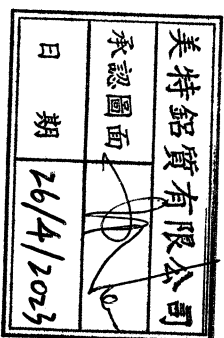 美特鋁質有限公司
承認圖面
日期 26/4/2023